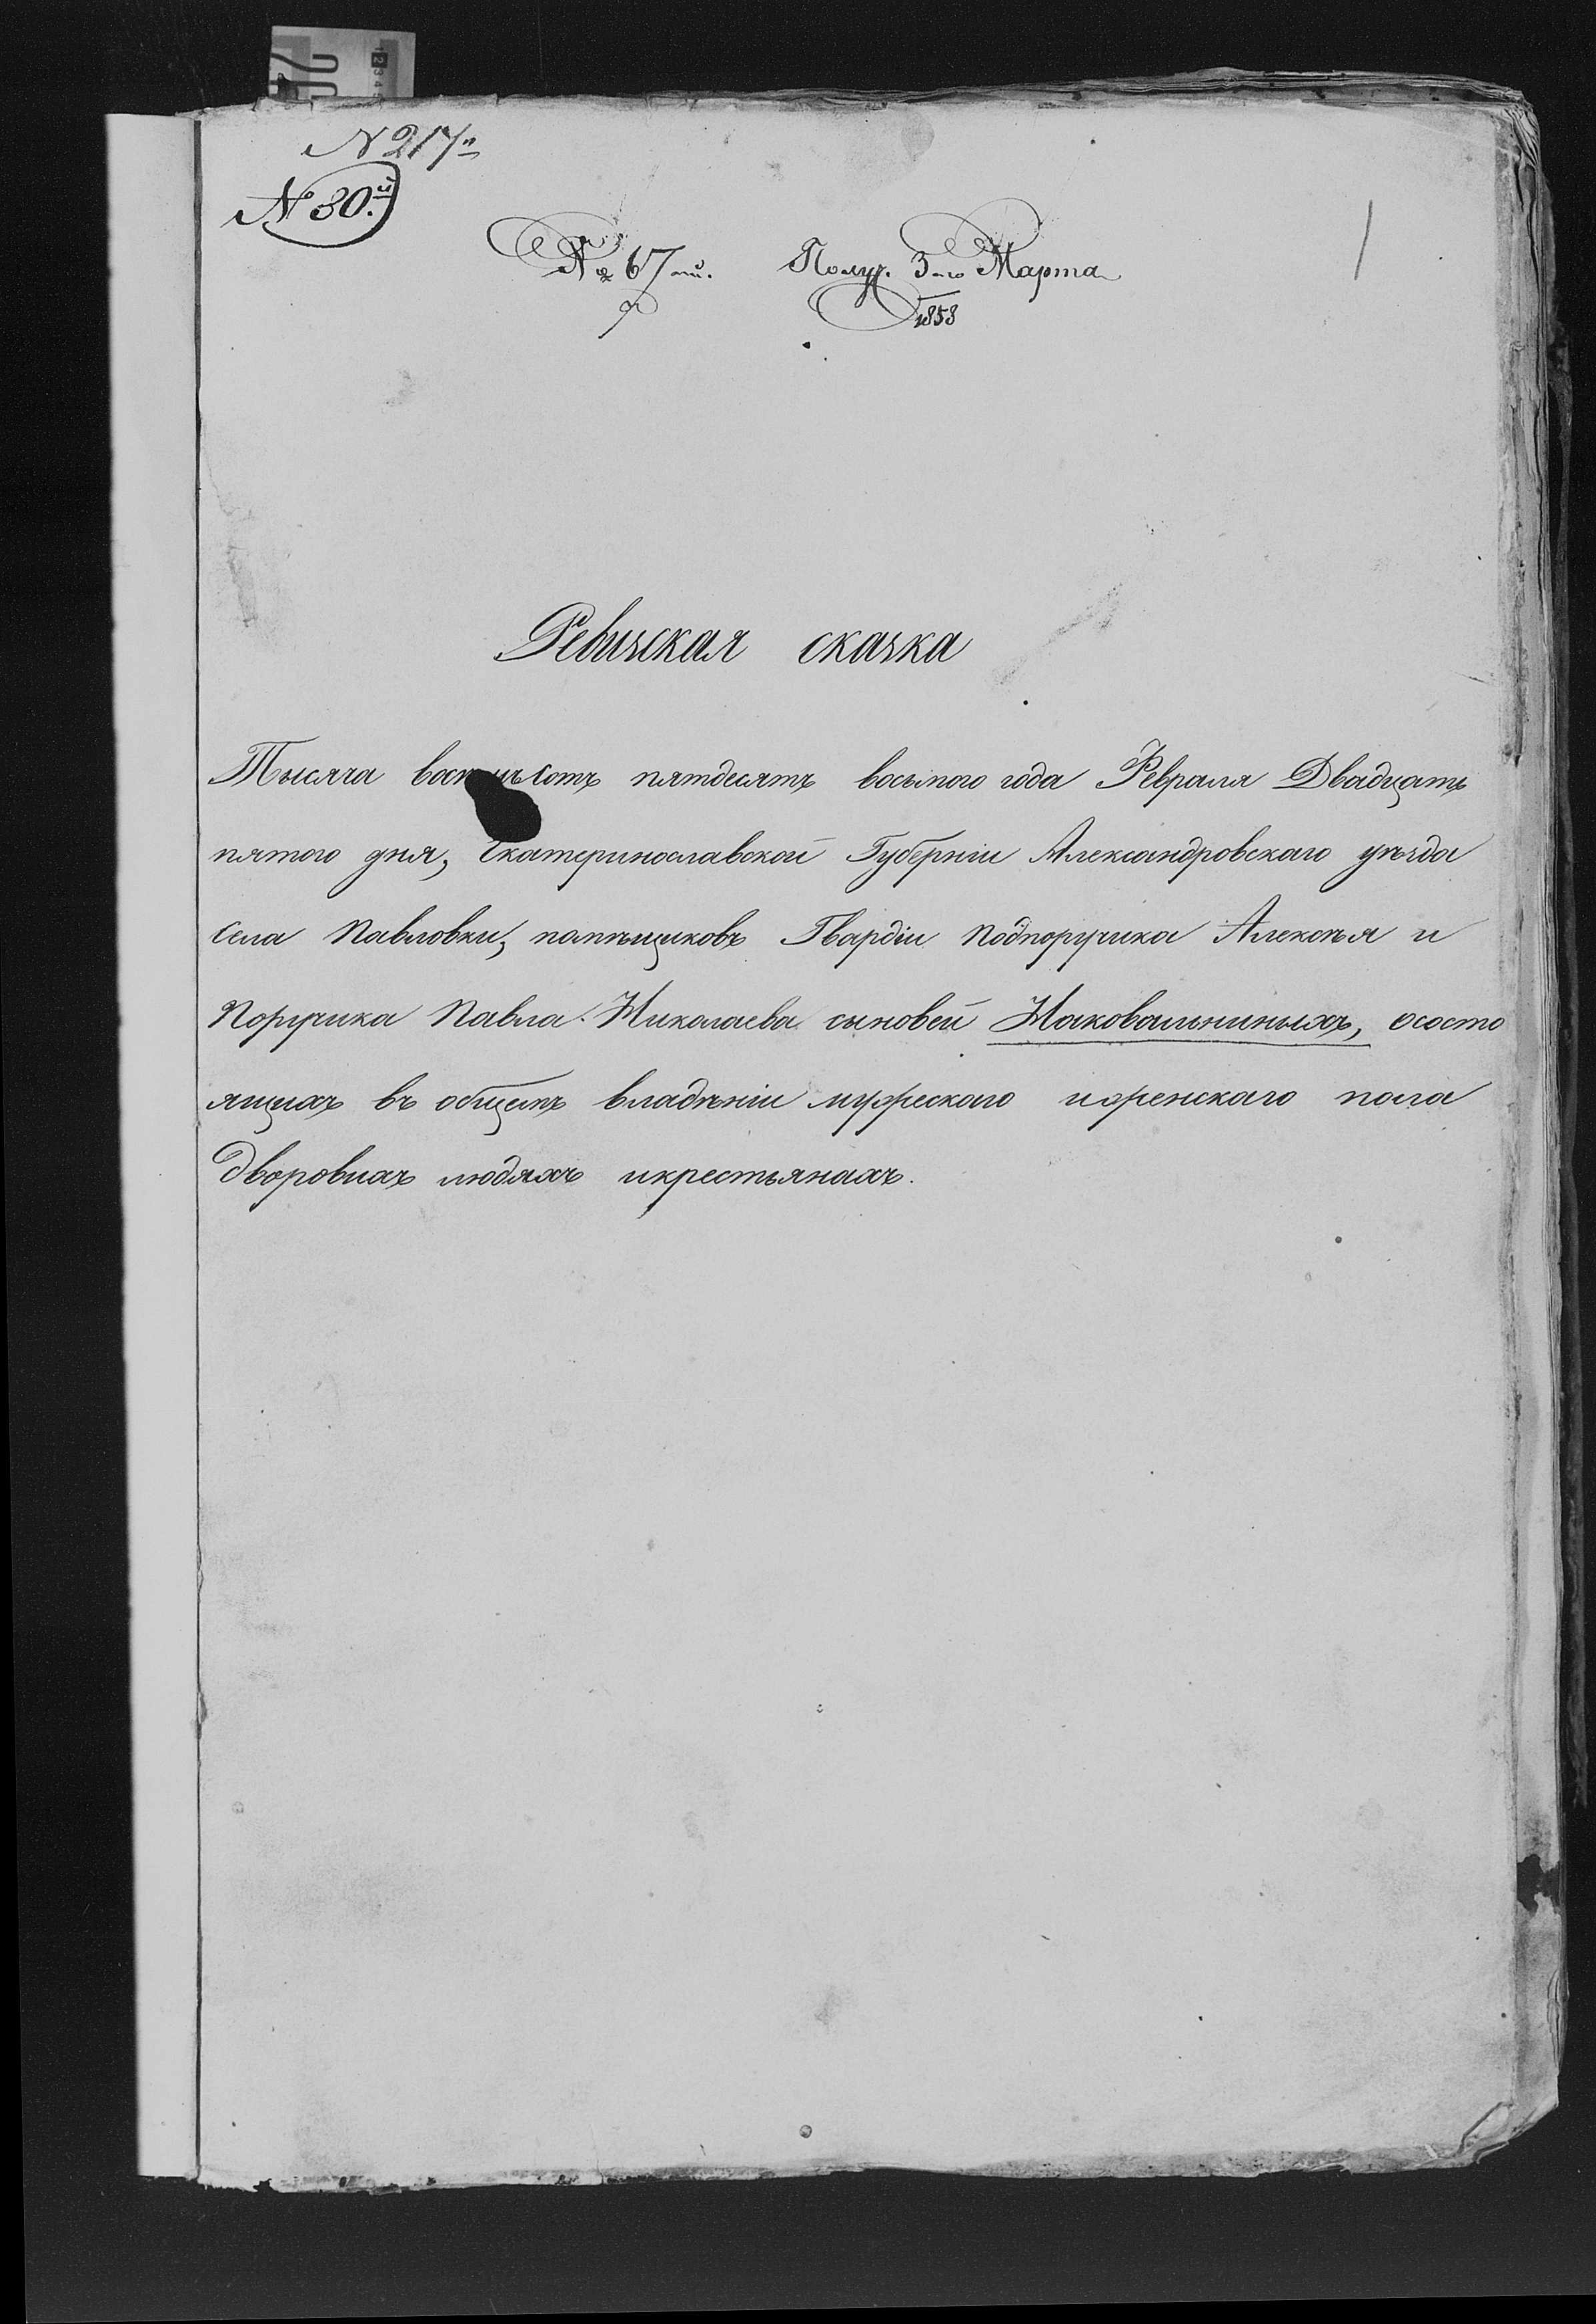 № 217й
№ 30.й
№ 67ой. Получ. 3го Марта
1858
1
Ревизская сказка
Тысяча восемьсотъ пятдесятъ восьмого года Февраля Двадцать
пятого дня, Екатеринославской Губерніи Александровскаго уѣзда
Села Павловки, помѣщиковъ Гвардіи Подпоручика Алексѣя и
Поручика Павла Николаева сыновей Наковальниныхъ, ососто
ящихъ въ общемъ владѣніи мужескаго иженскаго пола
Дворовихъ людяхъ икрестьянахъ.